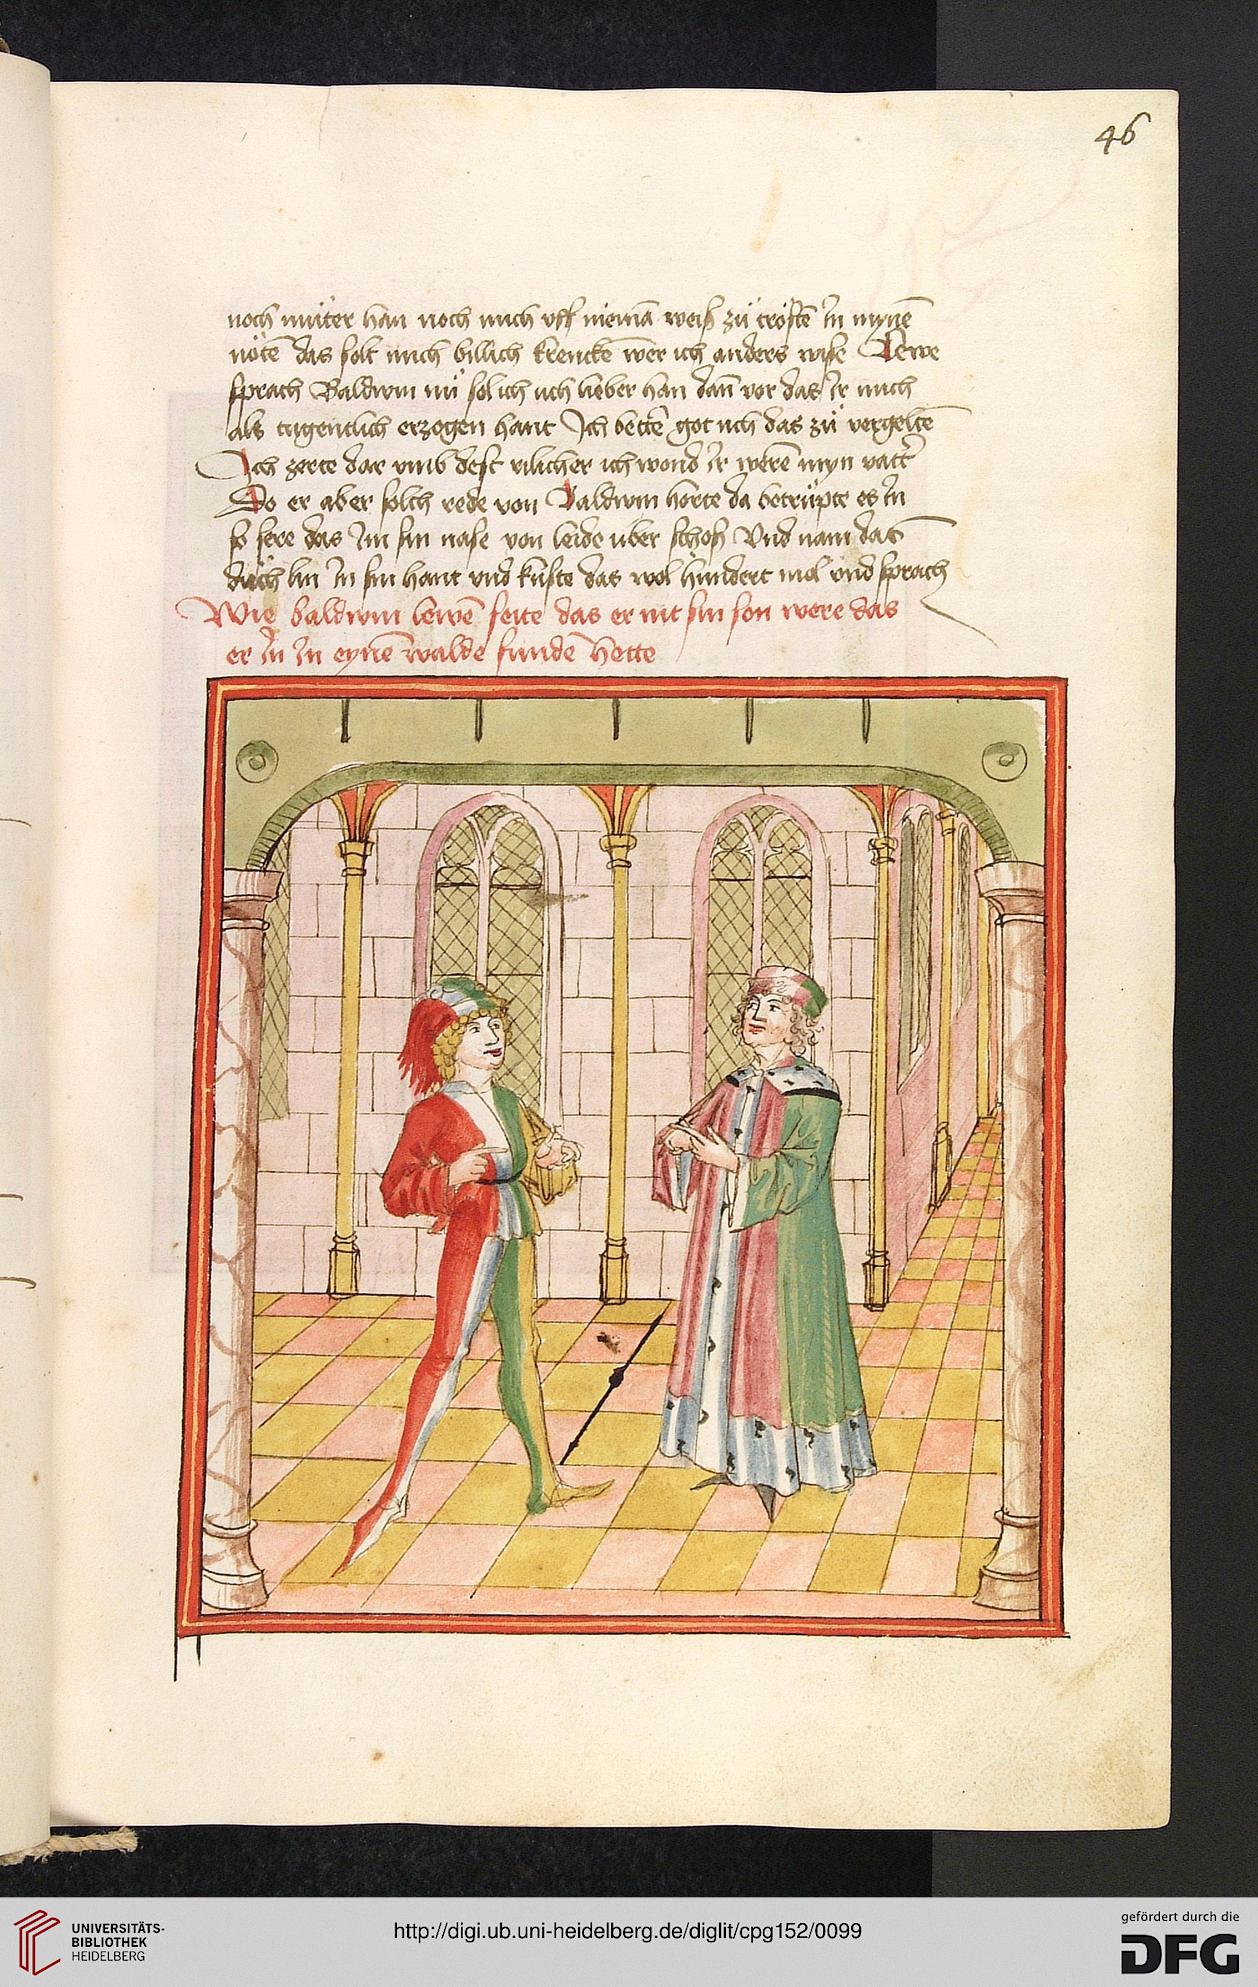 46
noch muter han noch mich vff niemā weiß zu trösten In mynē
nöten das solt mich billich krencken wer ich anders wise Lewe
sprach Baldwin nü sol ich uch lieber han dan vor das Ir mich
als tugentlich erzogen hant Ich bette got uch das zü vergeltē
Ich zerte dar vmb dest vilicher ich wond Ir werē myn vatt'
Do er aber solch rede von Baldwin horte da betrüpte es In
so sere das Im sin nase von leide uber schoß Vnd nam das
düchlin In sin hant vnd kuste das wol hundert mol vnd sprach
Wie baldwin lewē seite das er nit sin son were das
er In In eynē walde funde hette
UNIVERSITÄTS-
BIBLIOTHEK
HEIDELBERG
http://digi.ub.uni-heidelberg.de/diglit/cpg152/0099
gefördert durch die
DFG